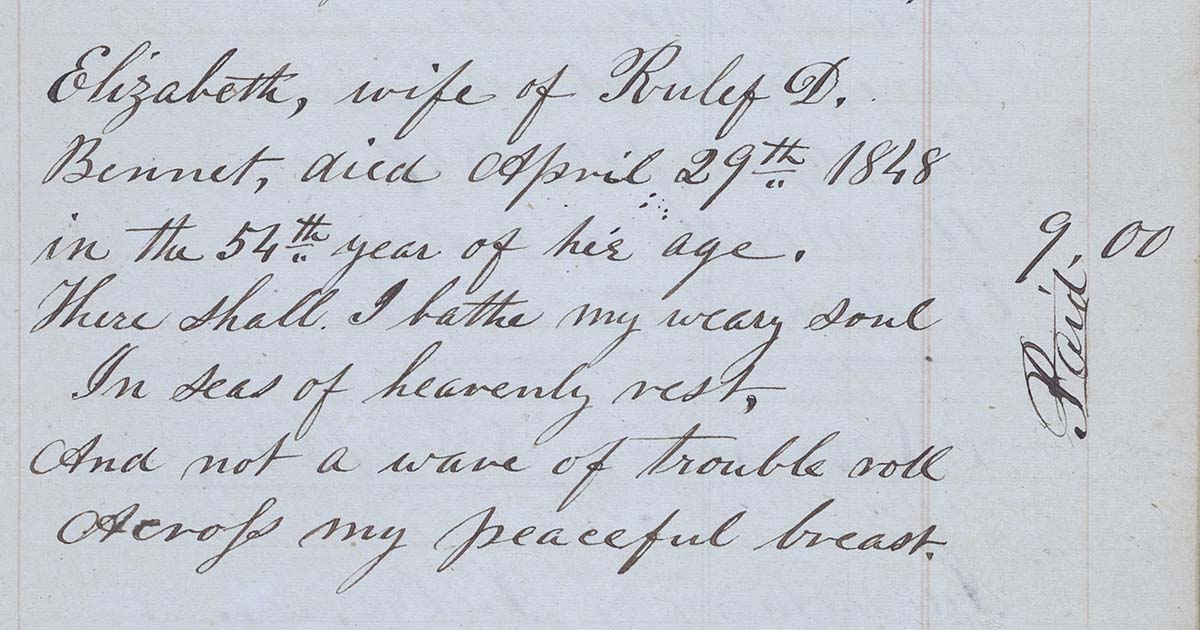 Elizabeth, wife of Rulef D.
Bennet, died April 29th 1848
in the 54th year of her age.
There shall I bathe my weary soul
In seas of heavenly rest,
And not a wave of trouble roll
Across my peaceful breast.
9.00
Paid